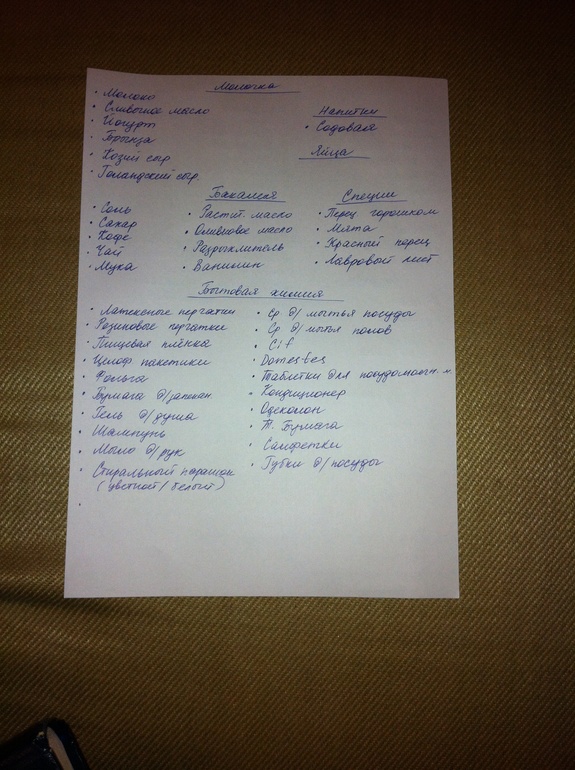 Молочка
• Молоко
• Сливочное масло
• Йогурт
• Брынза
• Козий сыр
• Голандский сыр
Напитки
• Содовая
Яйца
Бакалея
• Соль
• Сахар
• Кофе
• Чай
• Мука
• Растит. масло
• Оливковое масло
• Разрыхлитель
• Ванилин
Специи
• Перец горошком
• Мята
• Красный перец
• Лавровый лист
Бытовая химия
• Латексные перчатки
• Резиновые перчатки
• Пищевая плёнка
• Целоф. пакетики
• Фольга
• Бумага д/запекан.
• Гель д/душа
• Шампунь
• Мыло д/рук
• Стиральный порашок
(цветной/белый)
• Ср д/мытья посуды
• Ср д/мытья полов
• Cif
• Domestes
• Таблетки для посудомоечн. м.
• Кондиционер
• Одеколон
• Т. Бумага
• Салфетки
• Губки д/посуды